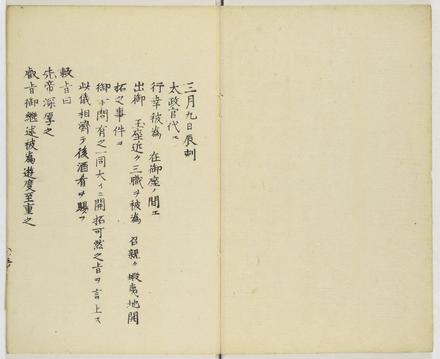 三月九日辰刻
太政官代ヘ
行幸被為 在御座ノ間ニ
出御 玉座近ク三職ヲ被為 召親ク蝦夷地開
拓之事件ヲ
御下問有之一同大イニ開拓可然之旨ヲ言上ス
此儀相済テ後酒肴ヲ賜フ
敕旨曰
先帝深厚之
叡旨御継述被為遊度至重之